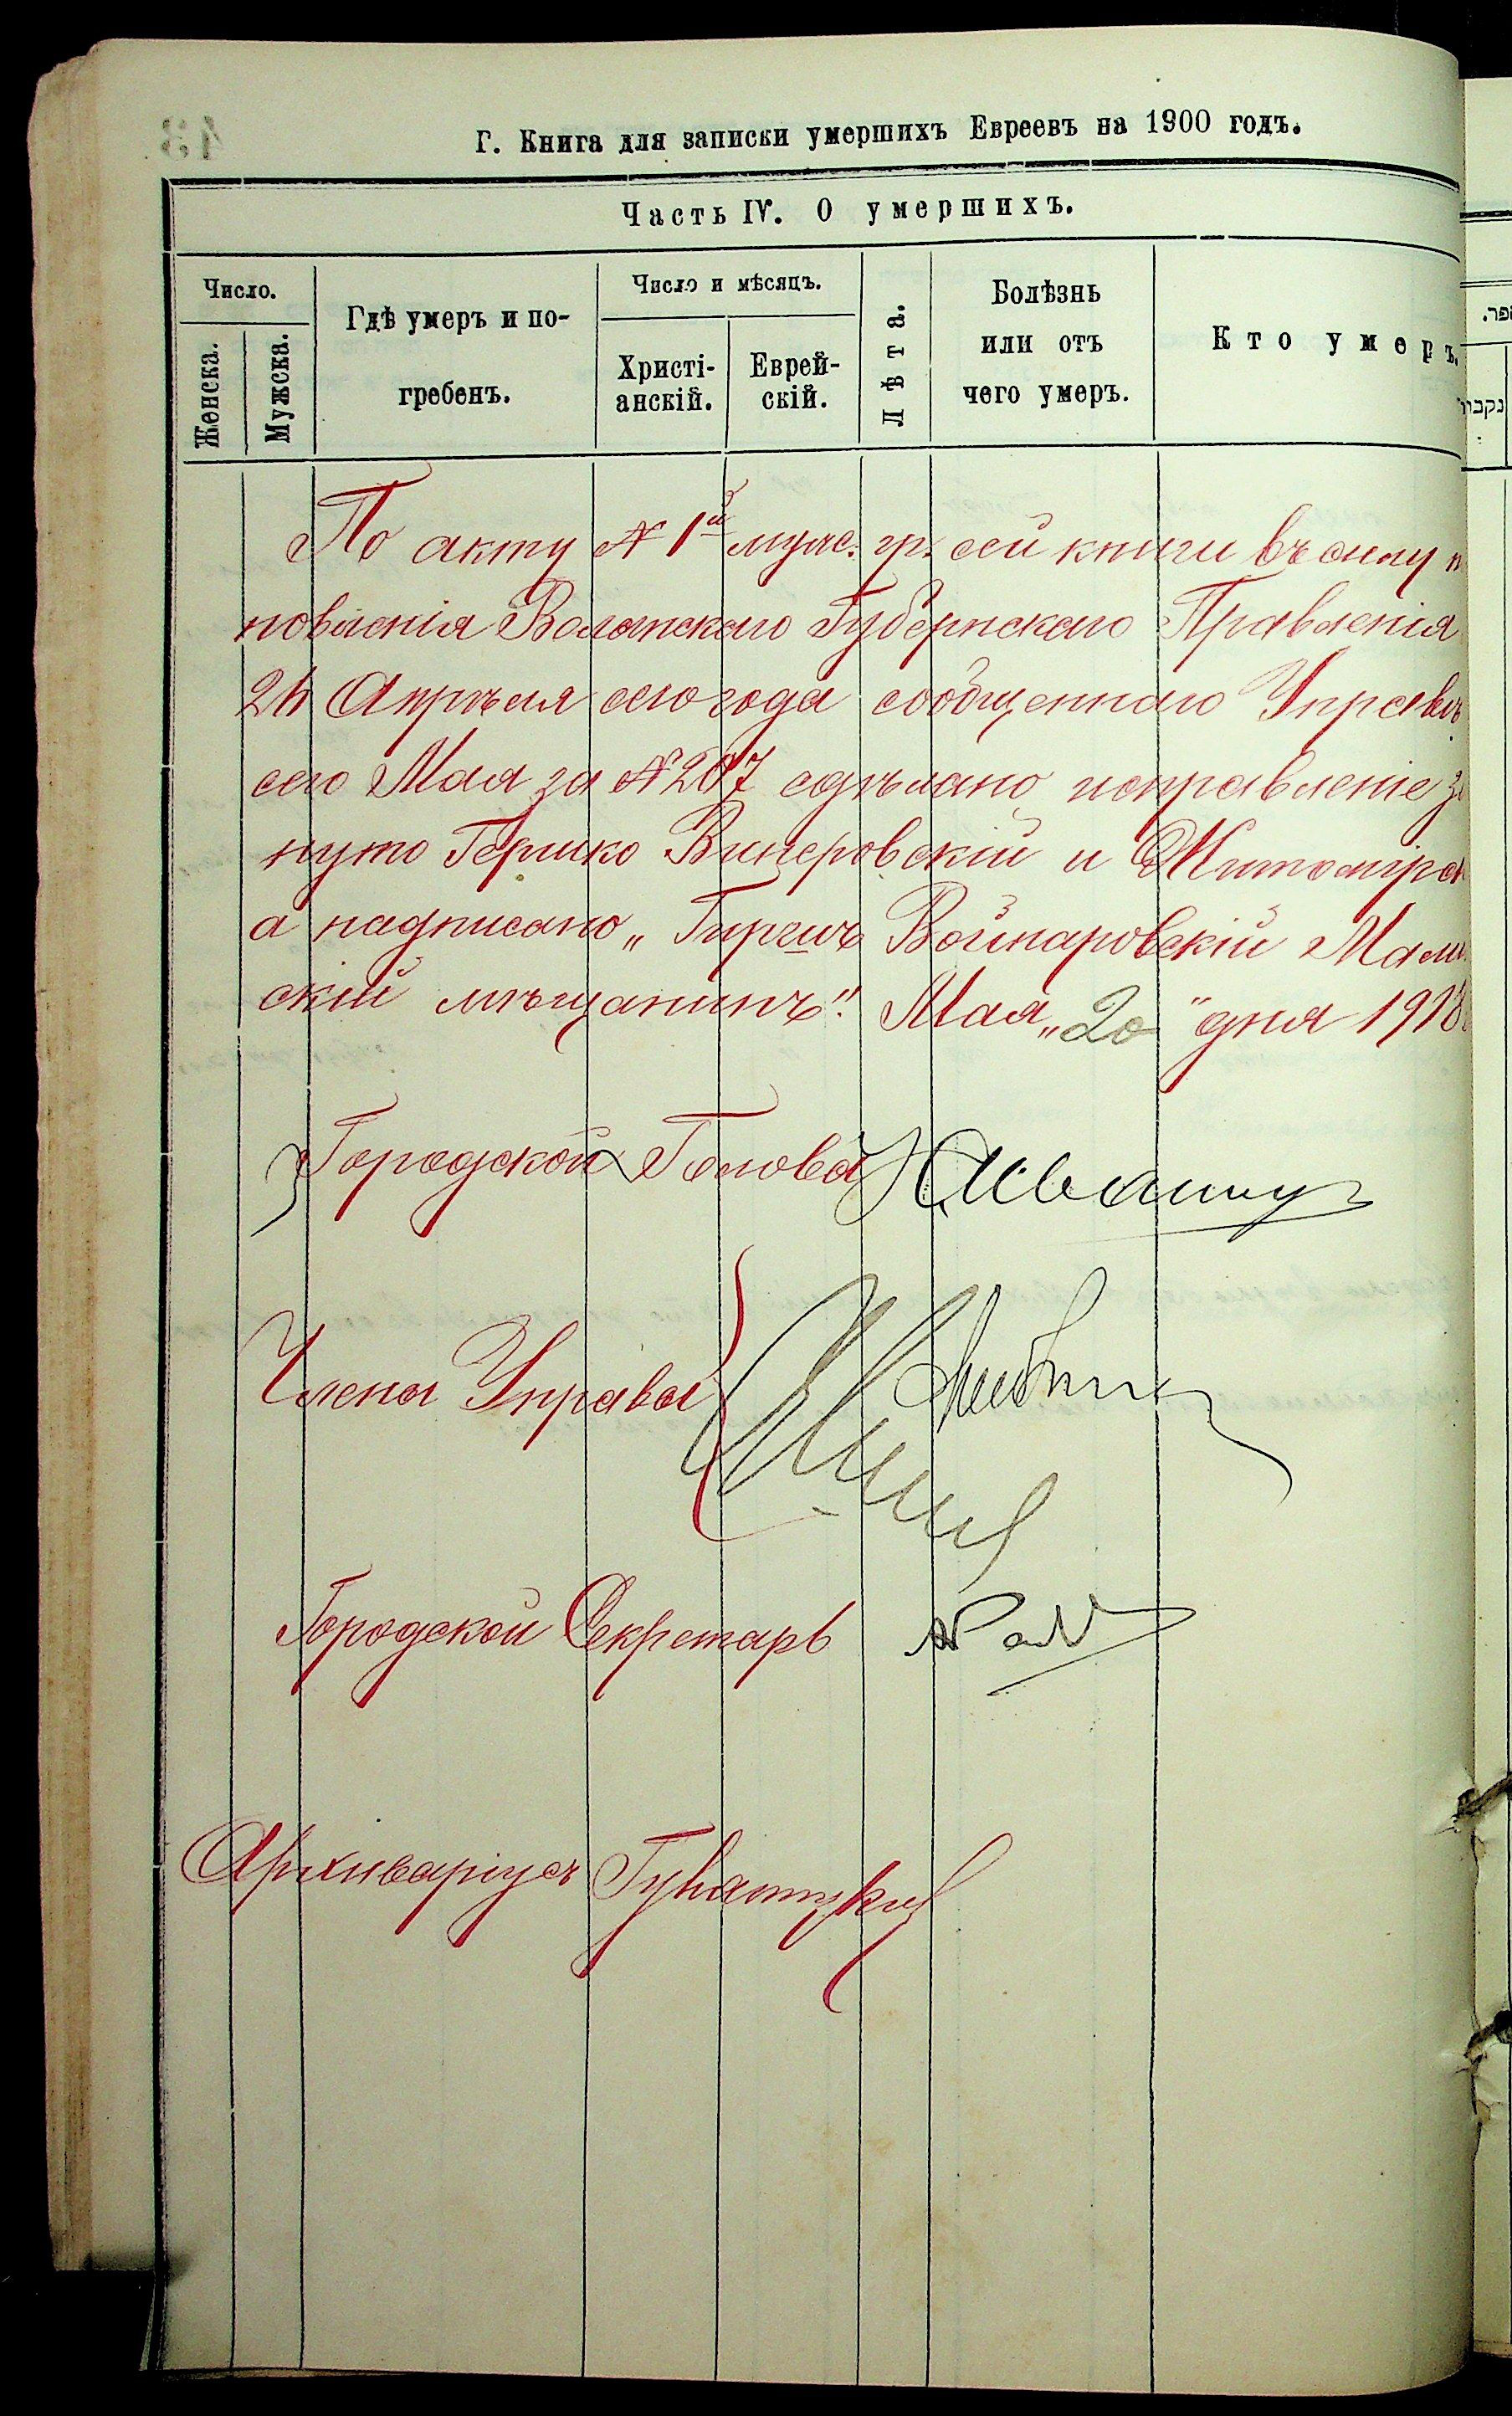 Г. Книга для записки умершихъ Евреевъ на 1900 годъ.
Часть IV. О умершихъ.
Число.
Женска.
Мужска.
Гдѣ умеръ и по-
гребенъ.
Число и мѣсяцъ.
Христі-
анскій.
Еврей-
скій.
Лѣта.
Болѣзнь
или отъ
чего умеръ.
Кто умеръ.
По акту № 1й муже. гр. сей книги въ силу
новленія Волынскаго Губернскаго Правленія
24 Апрѣля сего года сообщеннаго Управѣ
сего Мая за № 207 сдѣлано исправленіе
нуто Гершко Винеровскій и Житомірск
а надписано „Гиршъ Войнаровскій
скій мѣщанинъ". Мая „20" дня 191
Городской Голова
Члены Управы
Городской Секретарь
Архиваріусъ